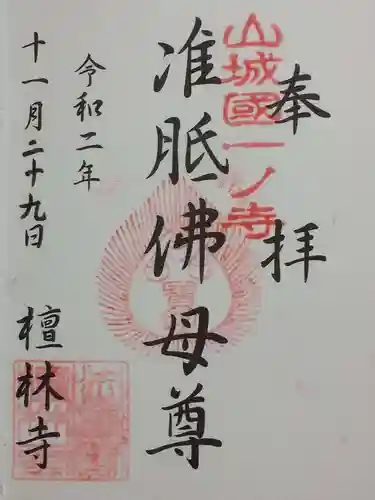 奉拝
山城國一ノ寺
准胝佛母尊
令和二年
十一月二十九日
檀林寺